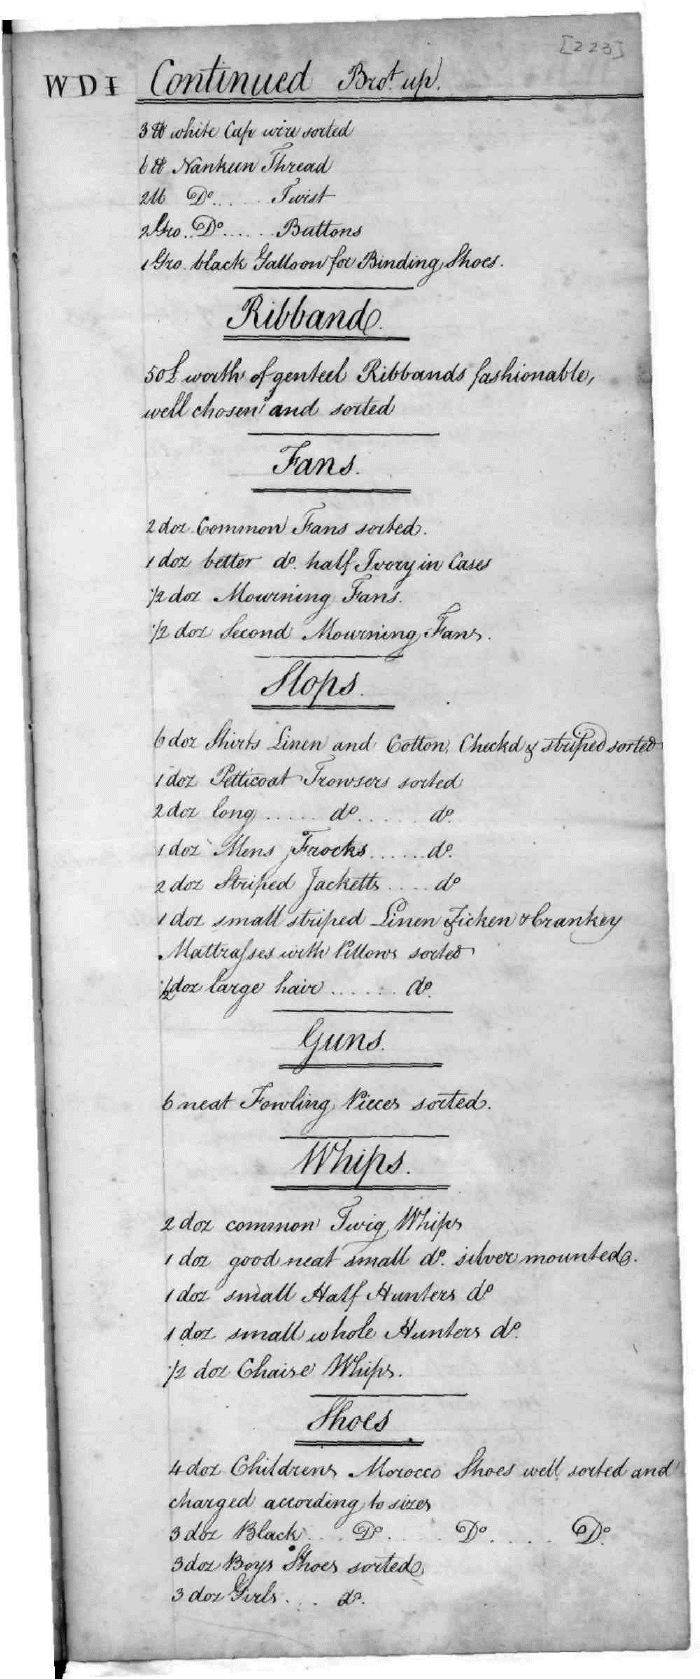 [223]
WDI Continued Brot. up.
3 ℔ white Cap wire sorted
6 ℔ Nankeen Thread
2 ℔ Do..... Twist
2 Gro. Do..... Buttons
1 Gro. black Galloon for Binding Shoes.
Ribband.
50£ worth of genteel Ribbands fashionable,
well chosen and sorted
Fans.
2 doz. Common Fans sorted.
1 doz better do. half Ivory in Cases
1/2 doz Mourning Fans.
1/2 doz Second Mourning Fans.
Slops.
6 doz Shirts Linen and Cotton, Checkd & striped sorted
1 doz Petticoat Trowsers sorted
2 doz long...... do...... do.
1 doz Mens Frocks...... do.
2 doz Striped Jacketts.... do
1 doz small striped Linen Ticken & Crankey
Mattrasses with Pillows sorted
1/2 doz large hair...... do.
Guns.
6 neat Fowling Pieces sorted.
Whips.
2 doz common Twig Whips
1 doz good neat small do. silver mounted.
1 doz small Half Hunters do
1 doz small whole Hunters do.
1/2 doz Chaise Whips.
Shoes
4 doz Childrens Morocco Shoes well sorted and
charged according to sizes
3 doz Black... Do...... Do...... Do.
3 doz Boys Shoes sorted
3 doz Girls.... do.